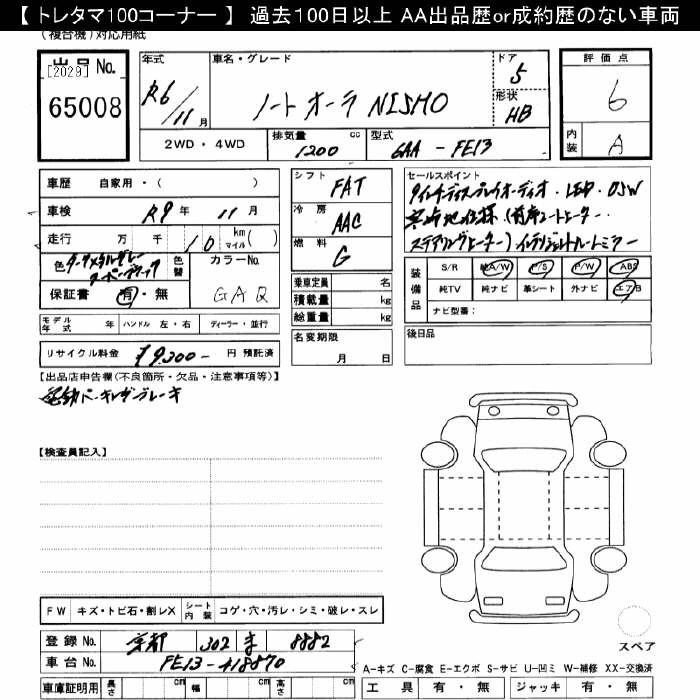 【 トレタマ100コーナー 】 過去100日以上 AA出品歴or成約歴のない車両
(複合機)対応用紙
出品 No.
[2029]
65008
年式 R6/11月
車名・グレード ノート オーラ NISMO
ドア 5
形状 HB
評価点 6
内装 A
2WD・4WD
排気量 1200 cc
型式 6AA - FE13
車歴 自家用・( )
車検 R9年 11月
走行 万 千 10 km マイル( )
色 ダークメタルグレー スーパーブラック
色替
カラーNo. GAQ
保証書 有・無
シフト FAT
冷房 AAC
燃料 G
乗車定員 名
積載量 kg
総重量 kg
セールスポイント
9インチディスプレイオーディオ・LED・DSW
寒冷地仕様(前席シートヒーター・
ステアリングヒーター)インテリジェントルームミラー
装備品 S/R 純A/W P/S P/W ABS
純TV 純ナビ 革シート 外ナビ エアB
ナビ型番:
モデル年式 年 ハンドル 左・右 ディーラー・並行
名変期限 月 日
後日品
リサイクル料金 ¥9,300- 円 預託済
【出品店申告欄(不良箇所・欠品・注意事項等)】
電動パーキングブレーキ
【検査員記入】
FW キズ・トビ石・割レX シート内装 コゲ・穴・汚レ・シミ・破レ・スレ
登録 No. 京都 302 8882
車台 No. FE13-418870
車庫証明用 長さ cm 幅 cm 高さ cm
スペア
A-キズ C-腐食 E-エクボ S-サビ U-凹ミ W-補修 XX-交換済
工具 有・無 ジャッキ 有・無